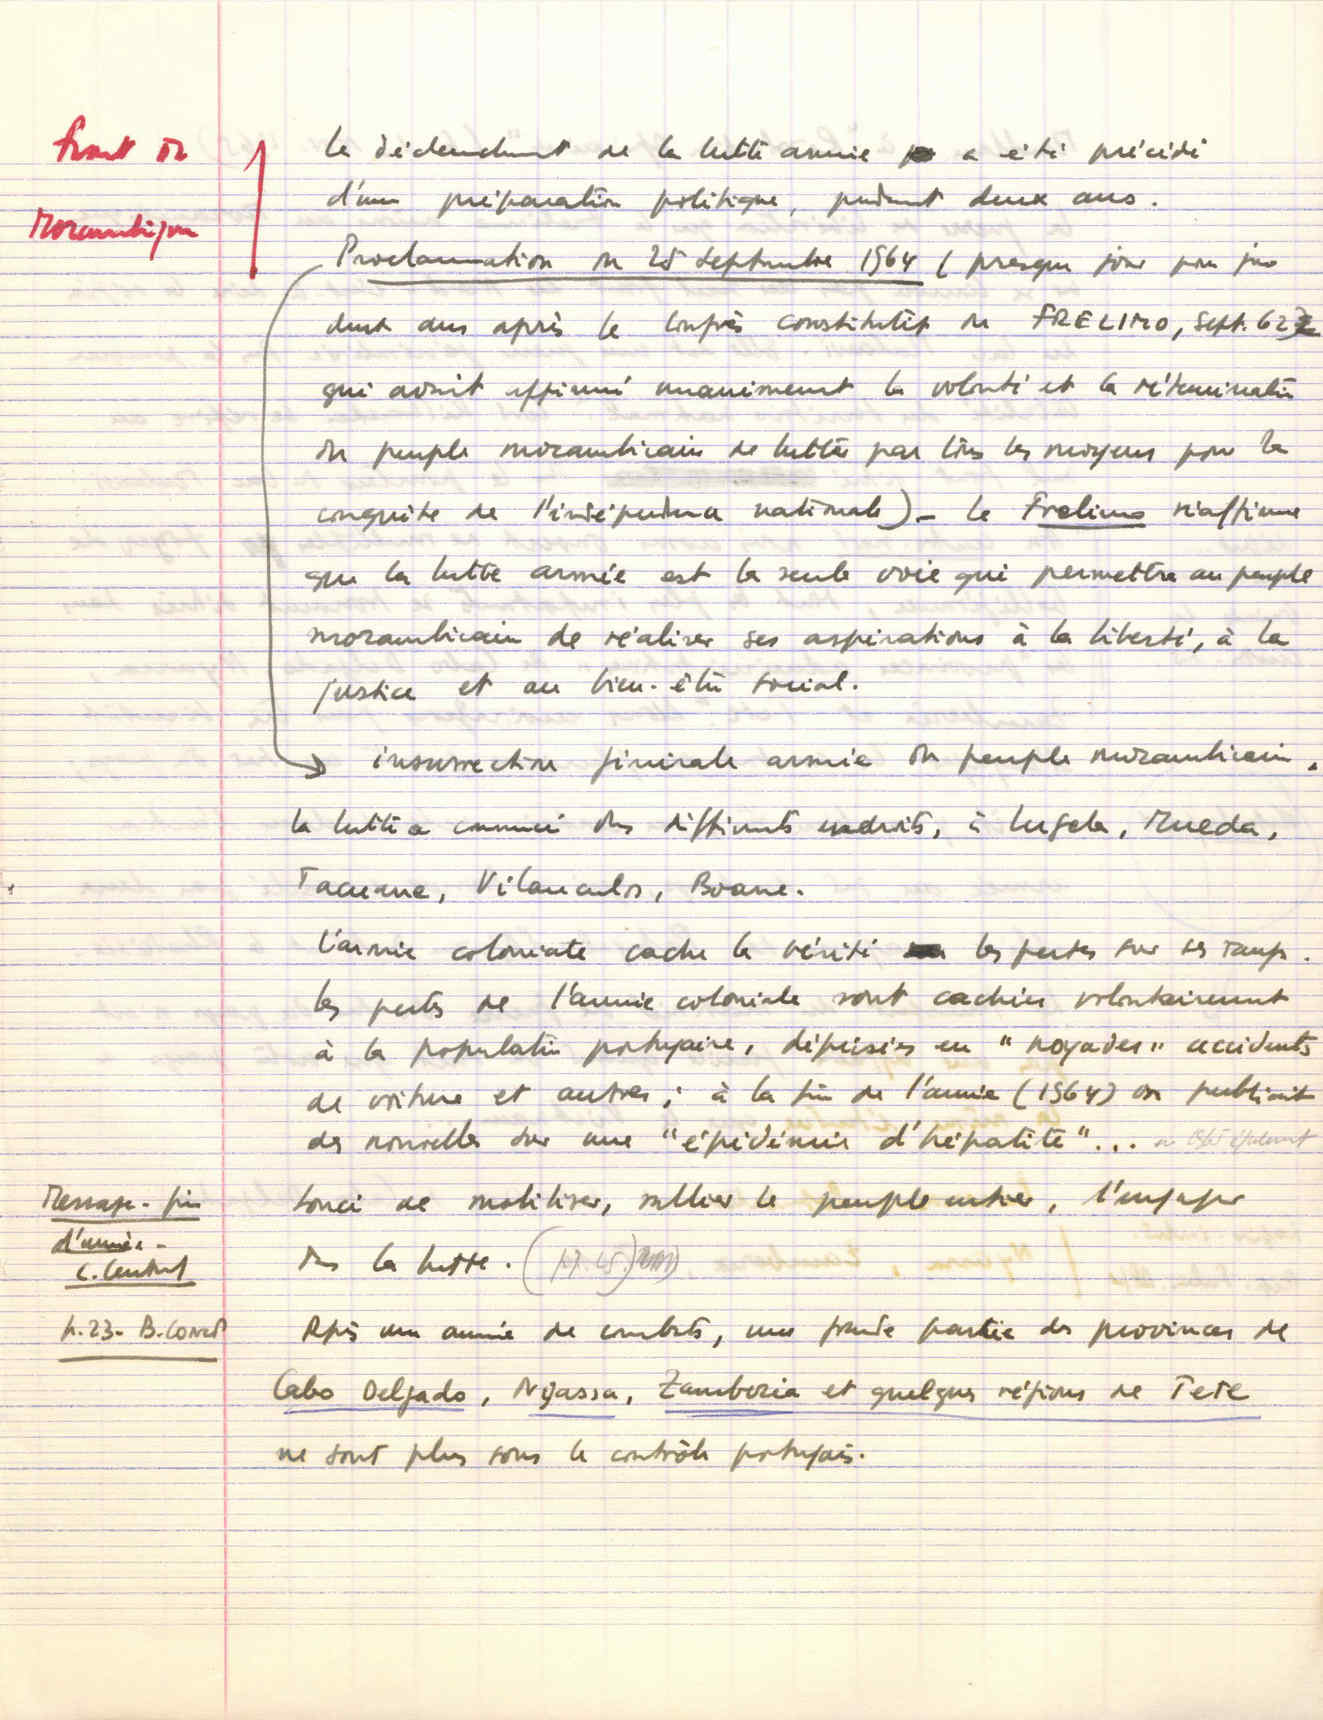 Front du
Mozambique
Le déclenchement de la lutte armée a été précédé
d'une préparation politique, pendant deux ans.
Proclamation du 25 septembre 1964 (presque jour pour jour
deux ans après le Congrès constitutif du FRELIMO, sept. 62
qui avait affirmé unanimement la volonté et la détermination
du peuple mozambicain de lutter par tous les moyens pour la
conquête de l'indépendance nationale) - Le Frelimo réaffirme
que la lutte armée est la seule voie qui permettra au peuple
mozambicain de réaliser ses aspirations à la liberté, à la
justice et au bien-être social.
→ insurrection générale armée du peuple mozambicain.
La lutte a commencé dans différents endroits, à Lugela, Mueda,
Tacuane, Vilanculos, Boane.
L'armée coloniale cache la vérité les pertes sur ses rangs.
Les pertes de l'armée coloniale sont cachées volontairement
à la population portugaise, déguisées en "noyades" accidents
de voiture et autres ; à la fin de l'année (1964) on publiait
des nouvelles sur une "épidémie d'hépatite"... en 1965 également
Message - fin
d'année -
C. Central
souci de mobiliser, rallier le peuple entier, l'engager
dans la lutte.
p. 23 - B.
Après une année de combats, une grande partie des provinces de
Cabo Delgado, Nyassa, Zambezia et quelques régions de Tete
ne sont plus sous le contrôle portugais.